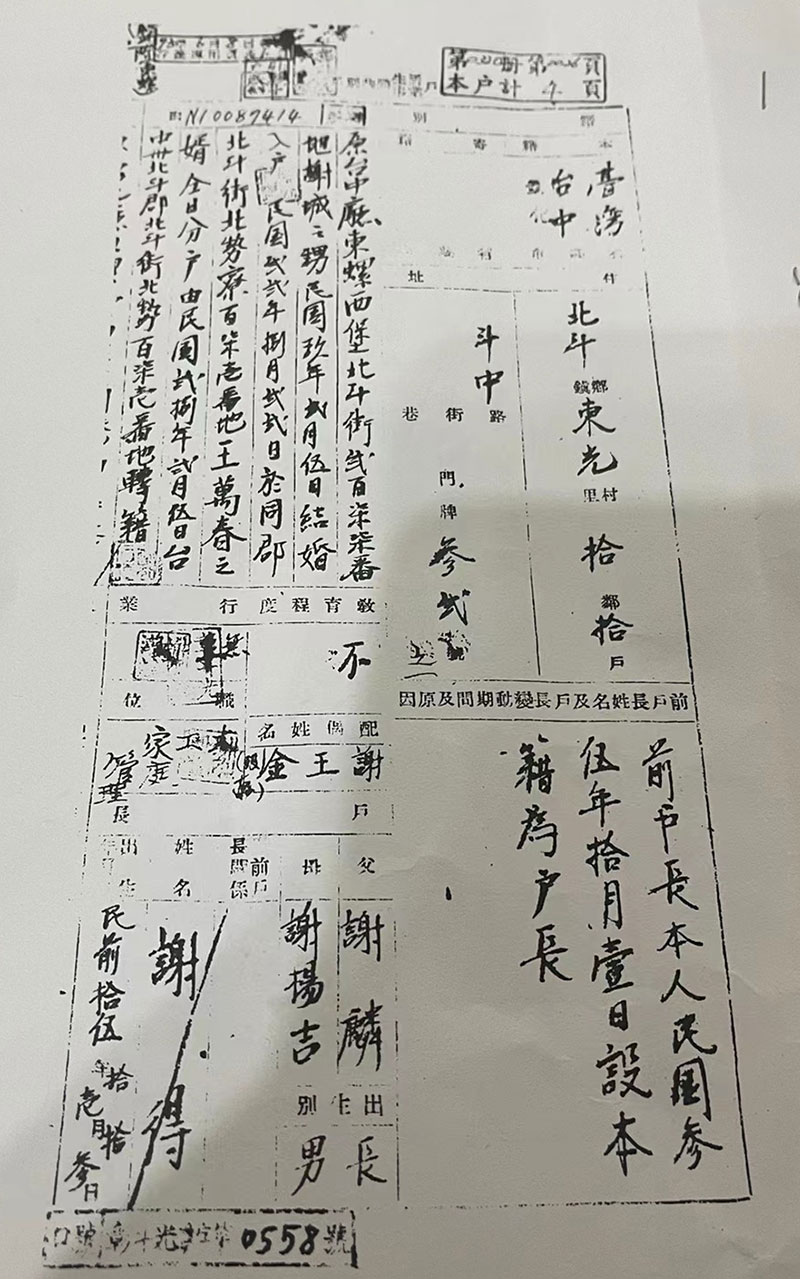 第 冊第 頁
本戶計 頁
本籍寄籍別
臺灣
台中
住址
北斗
鄉鎮
東光
村里
拾
鄰
拾
戶
斗中
路街巷
門牌
參弍
號
前戶長姓名及戶長變動期間及原因
前戶長本人民国參
伍年拾月壹日設本
籍為户長
N10087414
原台中廳東螺西堡北斗街弍百柒柒番
地謝城之甥民国玖年弍月伍日結婚
入户
民国弍弍年捌月弍弍日於同郡
北斗街北勢寮百柒壱番地王萬春之
婿仝日分户由民国弍捌年弍月伍日台
中州北斗郡北斗街北勢百柒壱番地轉籍
教育程度
不
行業
無
職位
家庭
管理
配偶姓名
謝王金
(歿)
戶長
父
謝麟
母
謝楊吉
出生別
長
男
前戶長關係
姓名
謝得
出生
民前拾伍年拾壱月拾參日
口號彰斗光 字第0558號